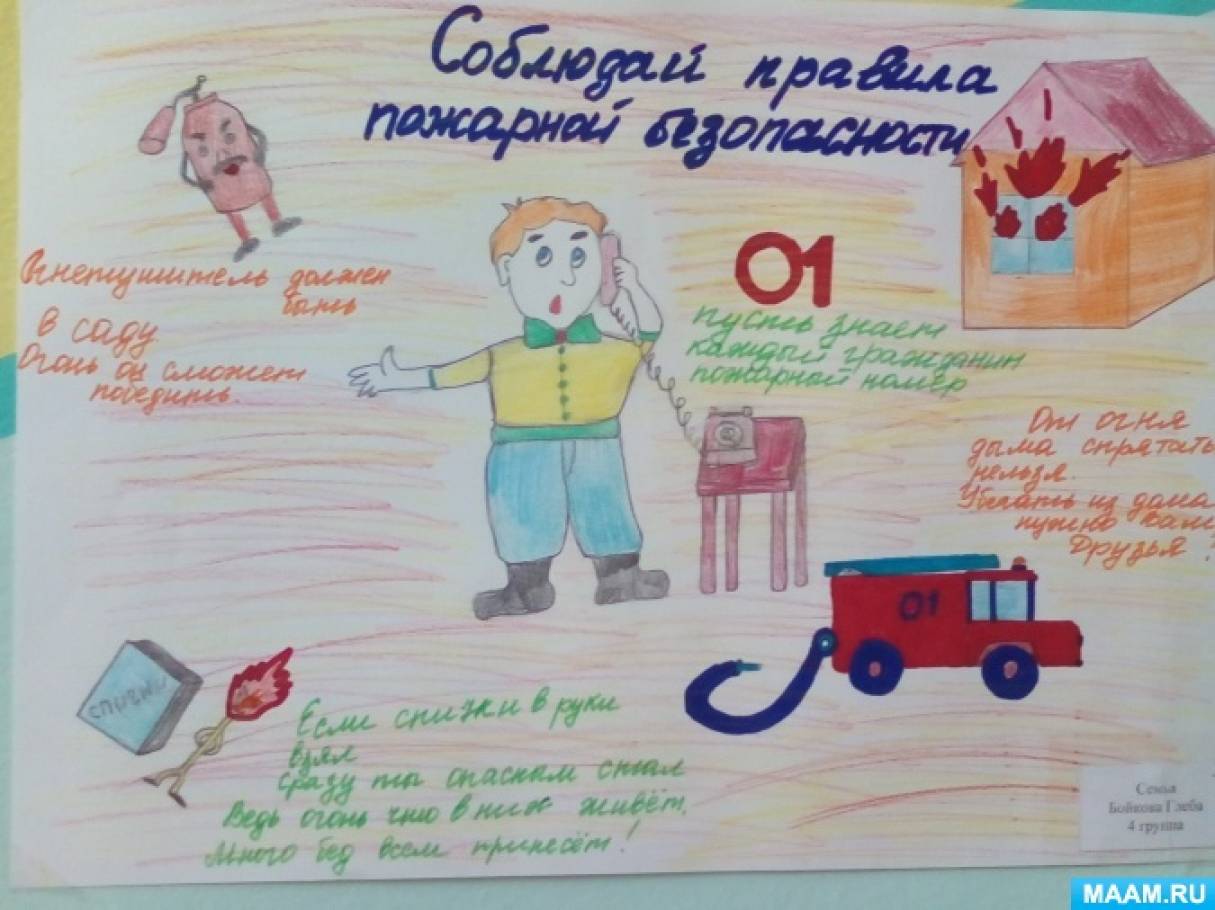 Соблюдай правила
пожарной безопасности
Огнетушитель должен
быть
в саду
Огонь он сможет
победить.
01
пусть знает
каждый гражданин
пожарный номер
От огня
дыма спрятать
нельзя.
Убегать из дома
нужно вам
друзья!
01
спички
Если спизки в руки
взял
Сразу ты опасным стал
Ведь огонь что в них живёт,
Много бед всем принесёт!
Семья
Бойкова Глеба
4 группа
MAAM.RU